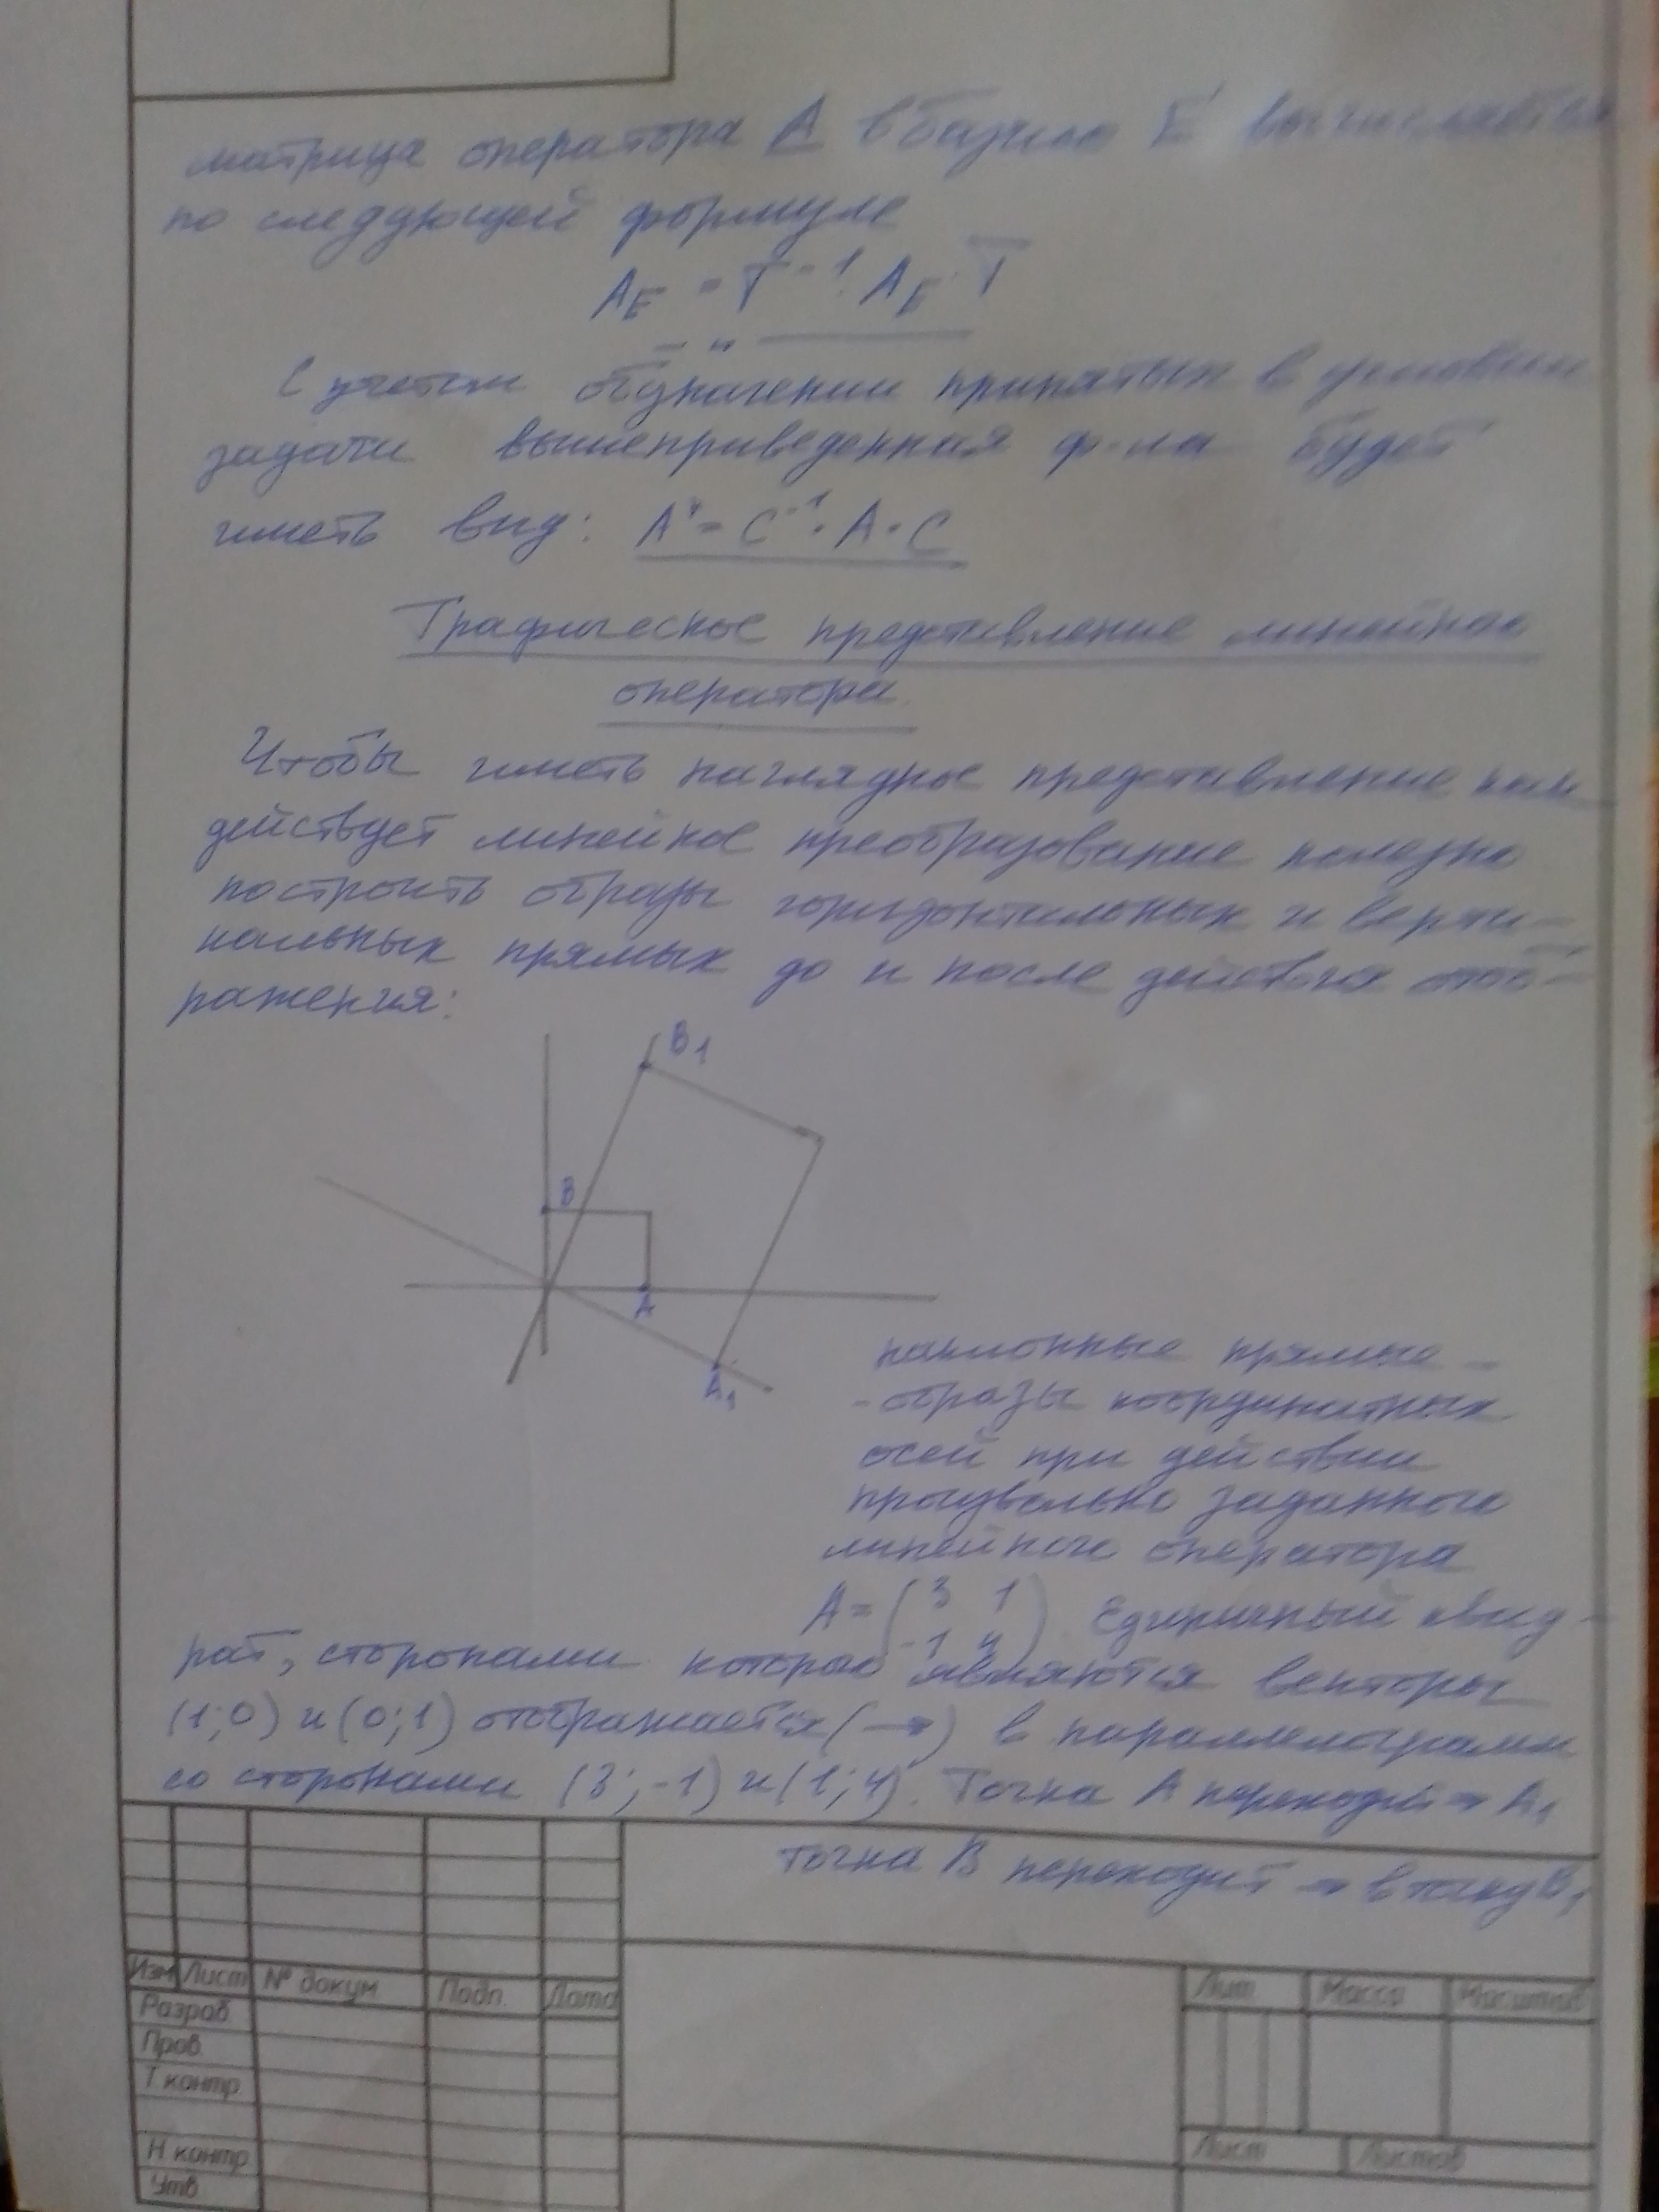 матрица оператора A в базисе E' вычисляется
по следующей формуле
A_E = T⁻¹ · A_E · T
С учетом обозначений принятых в условии
задачи вышеприведенная ф-ла будет
иметь вид: A' = C⁻¹ · A · C
Графическое представление линейного
оператора.
Чтобы иметь наглядное представление как
действует линейное преобразование полезно
построить образы горизонтальных и верти-
кальных прямых до и после действия отоб-
ражения:
B₁
B
A
A₁
наклонные прямые -
- образы координатных
осей при действии
произвольно заданного
линейного оператора
A = (3 1
-1 4) Единичный квад-
рат, сторонами которого являются векторы
(1;0) и (0;1) отображается (→) в параллелограмм
со сторонами (3;-1) и (1;4). Точка A переходит → A₁
точка B переходит → в точку B₁
Изм Лист № докум. Подп. Дата
Лит. Масса Масштаб
Разраб.
Пров.
Т. контр.
Лист Листов
Н. контр.
Утв.